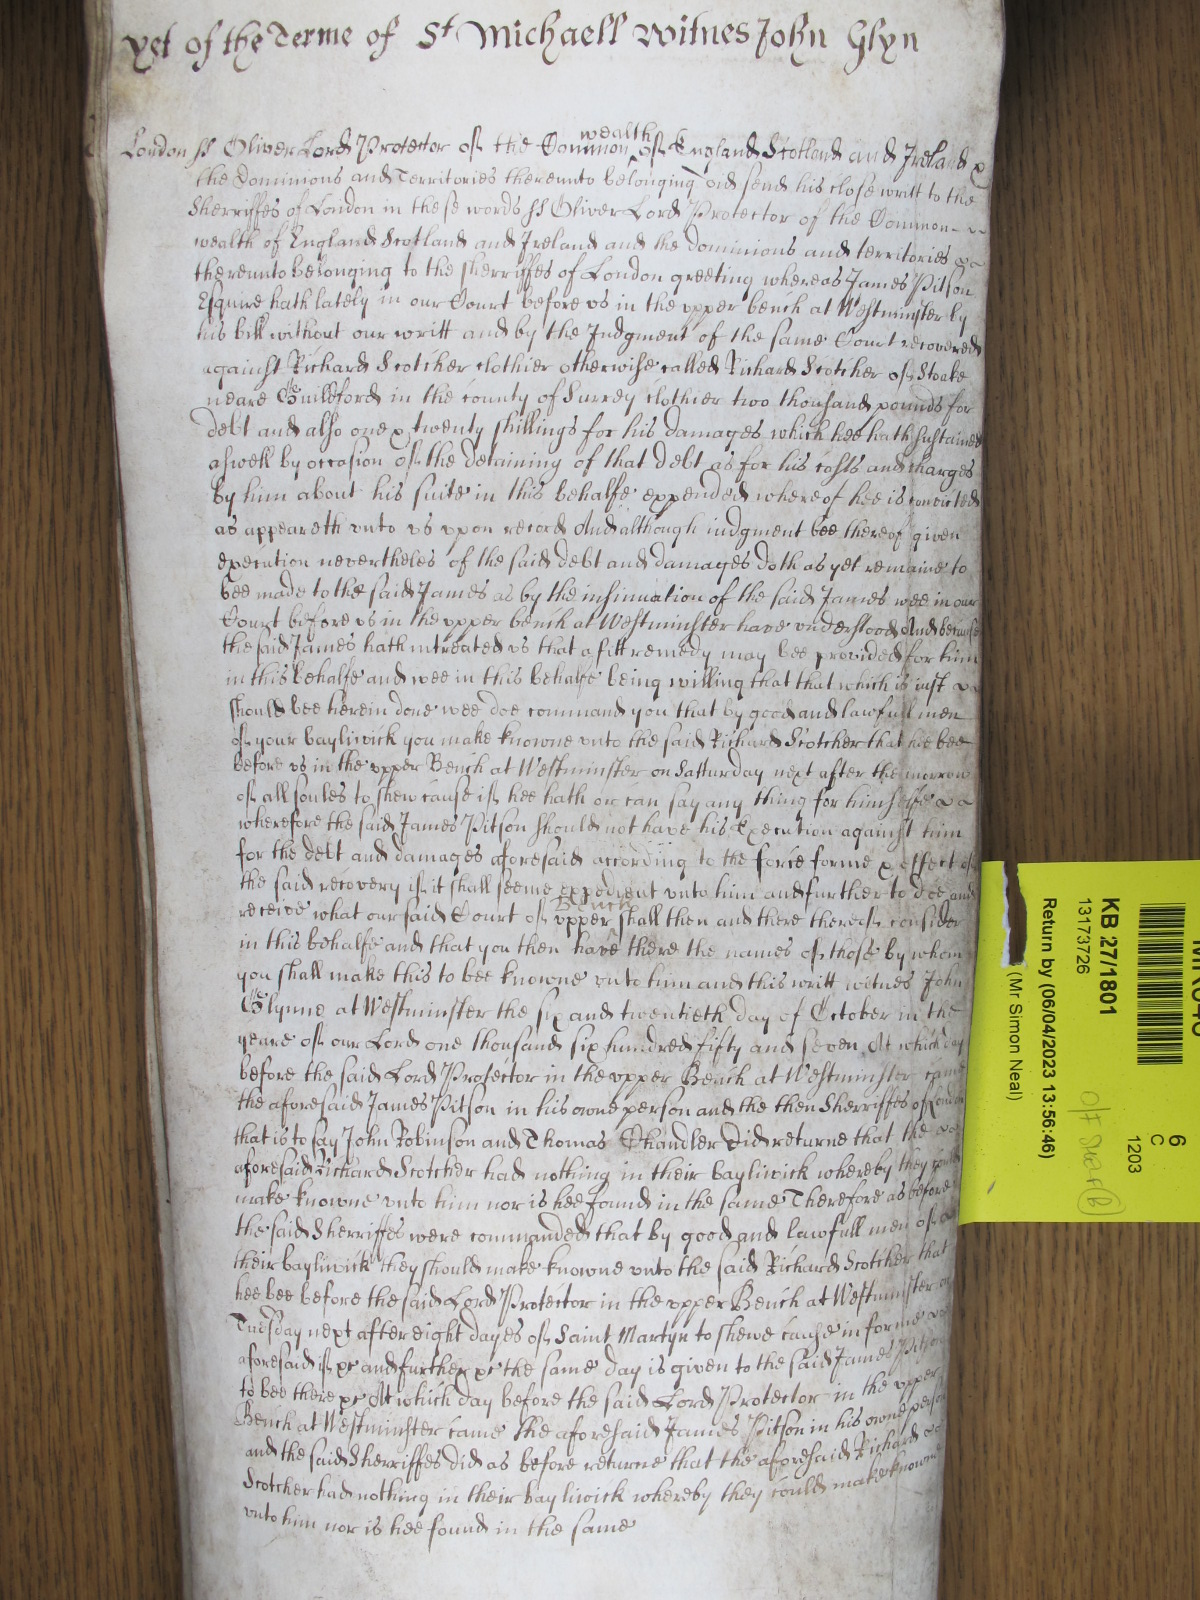 yet of the Terme of St Michaell Witnes John Glyn
London ss Oliver Lord Protector of the Common wealth of England Scotland and Ireland &
the Dominions and Territories thereunto belonging did send his close writt to the
Sherriffes of London in these words ss Oliver Lord Protector of the Common-
wealth of England Scotland and Ireland and the dominions and territories
thereunto belonging to the sherriffes of London greeting whereas James Pitson
Esquire hath lately in our Court before vs in the vpper bench at Westminster by
his bill without our writt and by the Judgment of the same Court recovered
against Richard Scotcher clothier otherwise called Richard Scotcher of Stoake
neare Guileford in the county of Surrey clothier two thousand pounds for
debt and also one & twenty shillings for his damages which hee hath sustained
aswell by occasion of the detaining of that debt as for his costs and charges
by him about his suite in this behalfe expended whereof hee is convicted
as appeareth vnto vs vpon record And although iudgment bee thereof given
execution nevertheles of the said debt and damages doth as yet remaine to
bee made to the said James as by the insinuation of the said James wee in our
Court before vs in the vpper bench at Westminster have vnderstood And because
the said James hath intreated vs that a fitt remedy may bee provided for him
in this behalfe and wee in this behalfe being willing that that which is iust
should bee herein done wee doe command you that by good and lawfull men
of your bayliwick you make knowne vnto the said Richard Scotcher that hee bee
before vs in the vpper Bench at Westminster on Satturday next after the morrow
of all soules to shew cause if hee hath or can say any thing for himselfe
wherefore the said James Pitson should not have his Execution against him
for the debt and damages aforesaid according to the force forme & effect of
the said recovery if it shall seeme expedient vnto him and further to doe and
receive what our said Court of vpper Bench shall then and there thereof consider
in this behalfe and that you then have there the names of those by whom
you shall make this to bee knowne vnto him and this writt witnes John
Glynne at Westminster the six and twentieth day of October in the
yeare of our Lord one thousand six hundred fifty and seven At which day
before the said Lord Protector in the vpper Bench at Westminster came
the aforesaid James Pitson in his owne person and the then Sherriffes of London
that is to say John Robinson and Thomas Chandler did returne that the
aforesaid Richard Scotcher had nothing in their bayliwick whereby they could
make knowne vnto him nor is hee found in the same Therefore as before
the said Sherriffes were commanded that by good and lawfull men of
their bayliwick they should make knowne vnto the said Richard Scotcher that
hee bee before the said Lord Protector in the vpper Bench at Westminster on
Tuesday next after eight dayes of Saint Martyn to shewe cause in forme
aforesaid if &c and further &c the same day is given to the said James Pitson
to bee there &c At which day before the said Lord Protector in the vpper
Bench at Westminster came the aforesaid James Pitson in his owne person
and the said Sherriffes did as before returne that the aforesaid Richard
Scotcher had nothing in their bayliwick whereby they could make knowne
vnto him nor is hee found in the same
6
C
1203
KB 27/1801
13173726
Return by (06/04/2023 13:56:46)
(Mr Simon Neal)